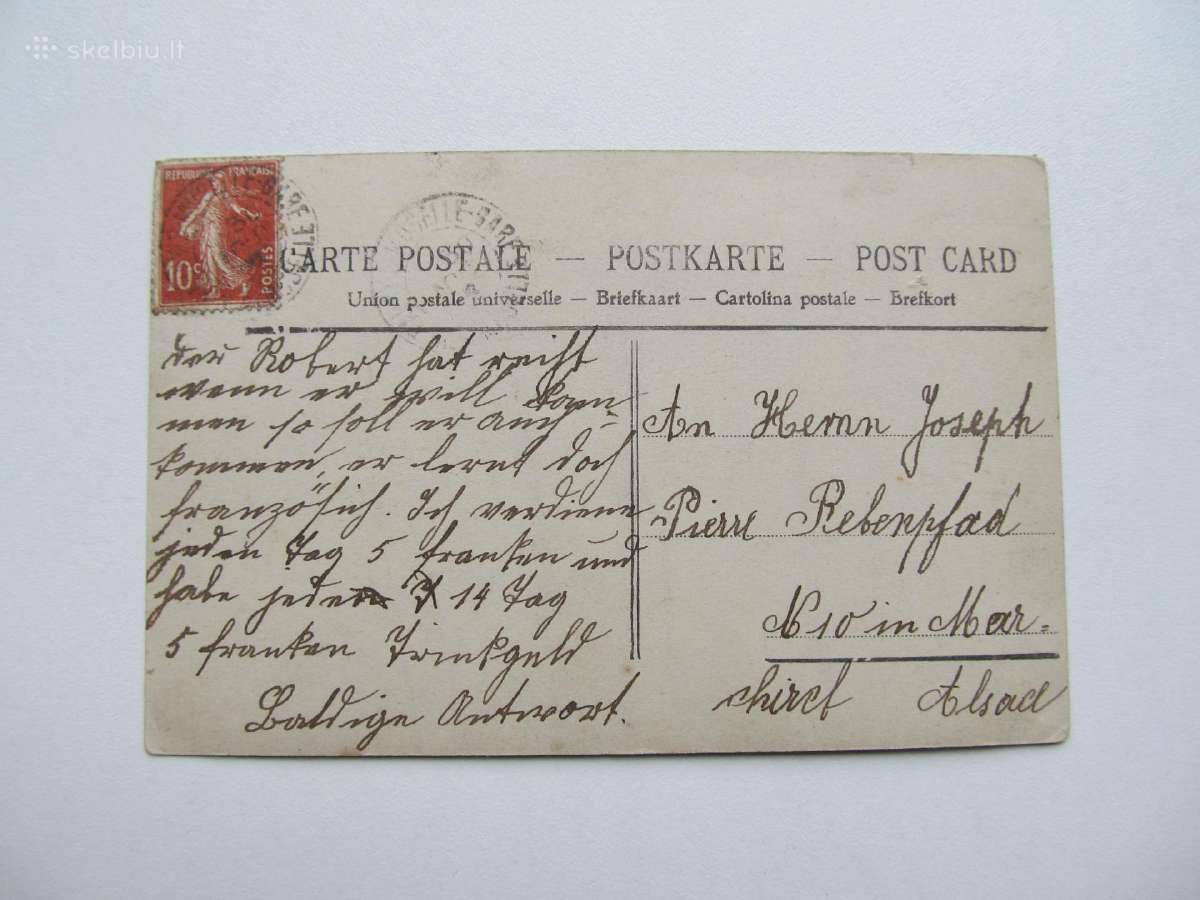 skelbiu.lt
REPUBLIQUE FRANÇAISE
10c POSTES
CARTE POSTALE — POSTKARTE — POST CARD
Union postale universelle — Briefkaart — Cartolina postale — Brefkort
der Robert hat recht
wenn er will kom
men so soll er auch
kommen, er lernt doch
französich. Ich verdiene
jeden Tag 5 franken und
habe jede 14 Tag
5 franken Trinkgeld
Baldige Antwort.
An Hernn Joseph
Pierre Rebenpfad
N 10 in Mar-
chirch Alsace